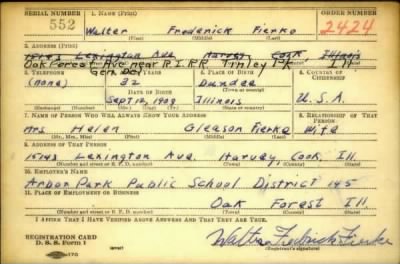 SERIAL NUMBER 1. NAME (Print) ORDER NUMBER
552 Walter Frederick Fierke 2424
(First) (Middle) (Last)
2. ADDRESS (Print)
15143 Lexington Ave Harvey Cook Illinois
Oak Forest Ave near R.I.RR Tinley Pk Ill
Gen. Del.
3. TELEPHONE 4. AGE IN YEARS 5. PLACE OF BIRTH 6. COUNTRY OF CITIZENSHIP
(none) 32 Dundee
(Town or county)
DATE OF BIRTH
Sept 12, 1908 Illinois U.S.A.
(Exchange) (Number) (Mo.) (Day) (Yr.) (State or country)
7. NAME OF PERSON WHO WILL ALWAYS KNOW YOUR ADDRESS 8. RELATIONSHIP OF THAT PERSON
Mrs Helen Gleason Fierke Wife
(Mr., Mrs., Miss) (First) (Middle) (Last)
9. ADDRESS OF THAT PERSON
15143 Lexington Ave. Harvey, Cook, Ill
(Number and street or R. F. D. number) (Town) (County) (State)
10. EMPLOYER'S NAME
Arbor Park Public School District 145
11. PLACE OF EMPLOYMENT OR BUSINESS
Oak Forest Ill.
(Number and street or R. F. D. number) (Town) (County) (State)
I AFFIRM THAT I HAVE VERIFIED ABOVE ANSWERS AND THAT THEY ARE TRUE.
REGISTRATION CARD
D. S. S. Form 1 (over) Walter Fredrick Fierke
(Registrant's signature)